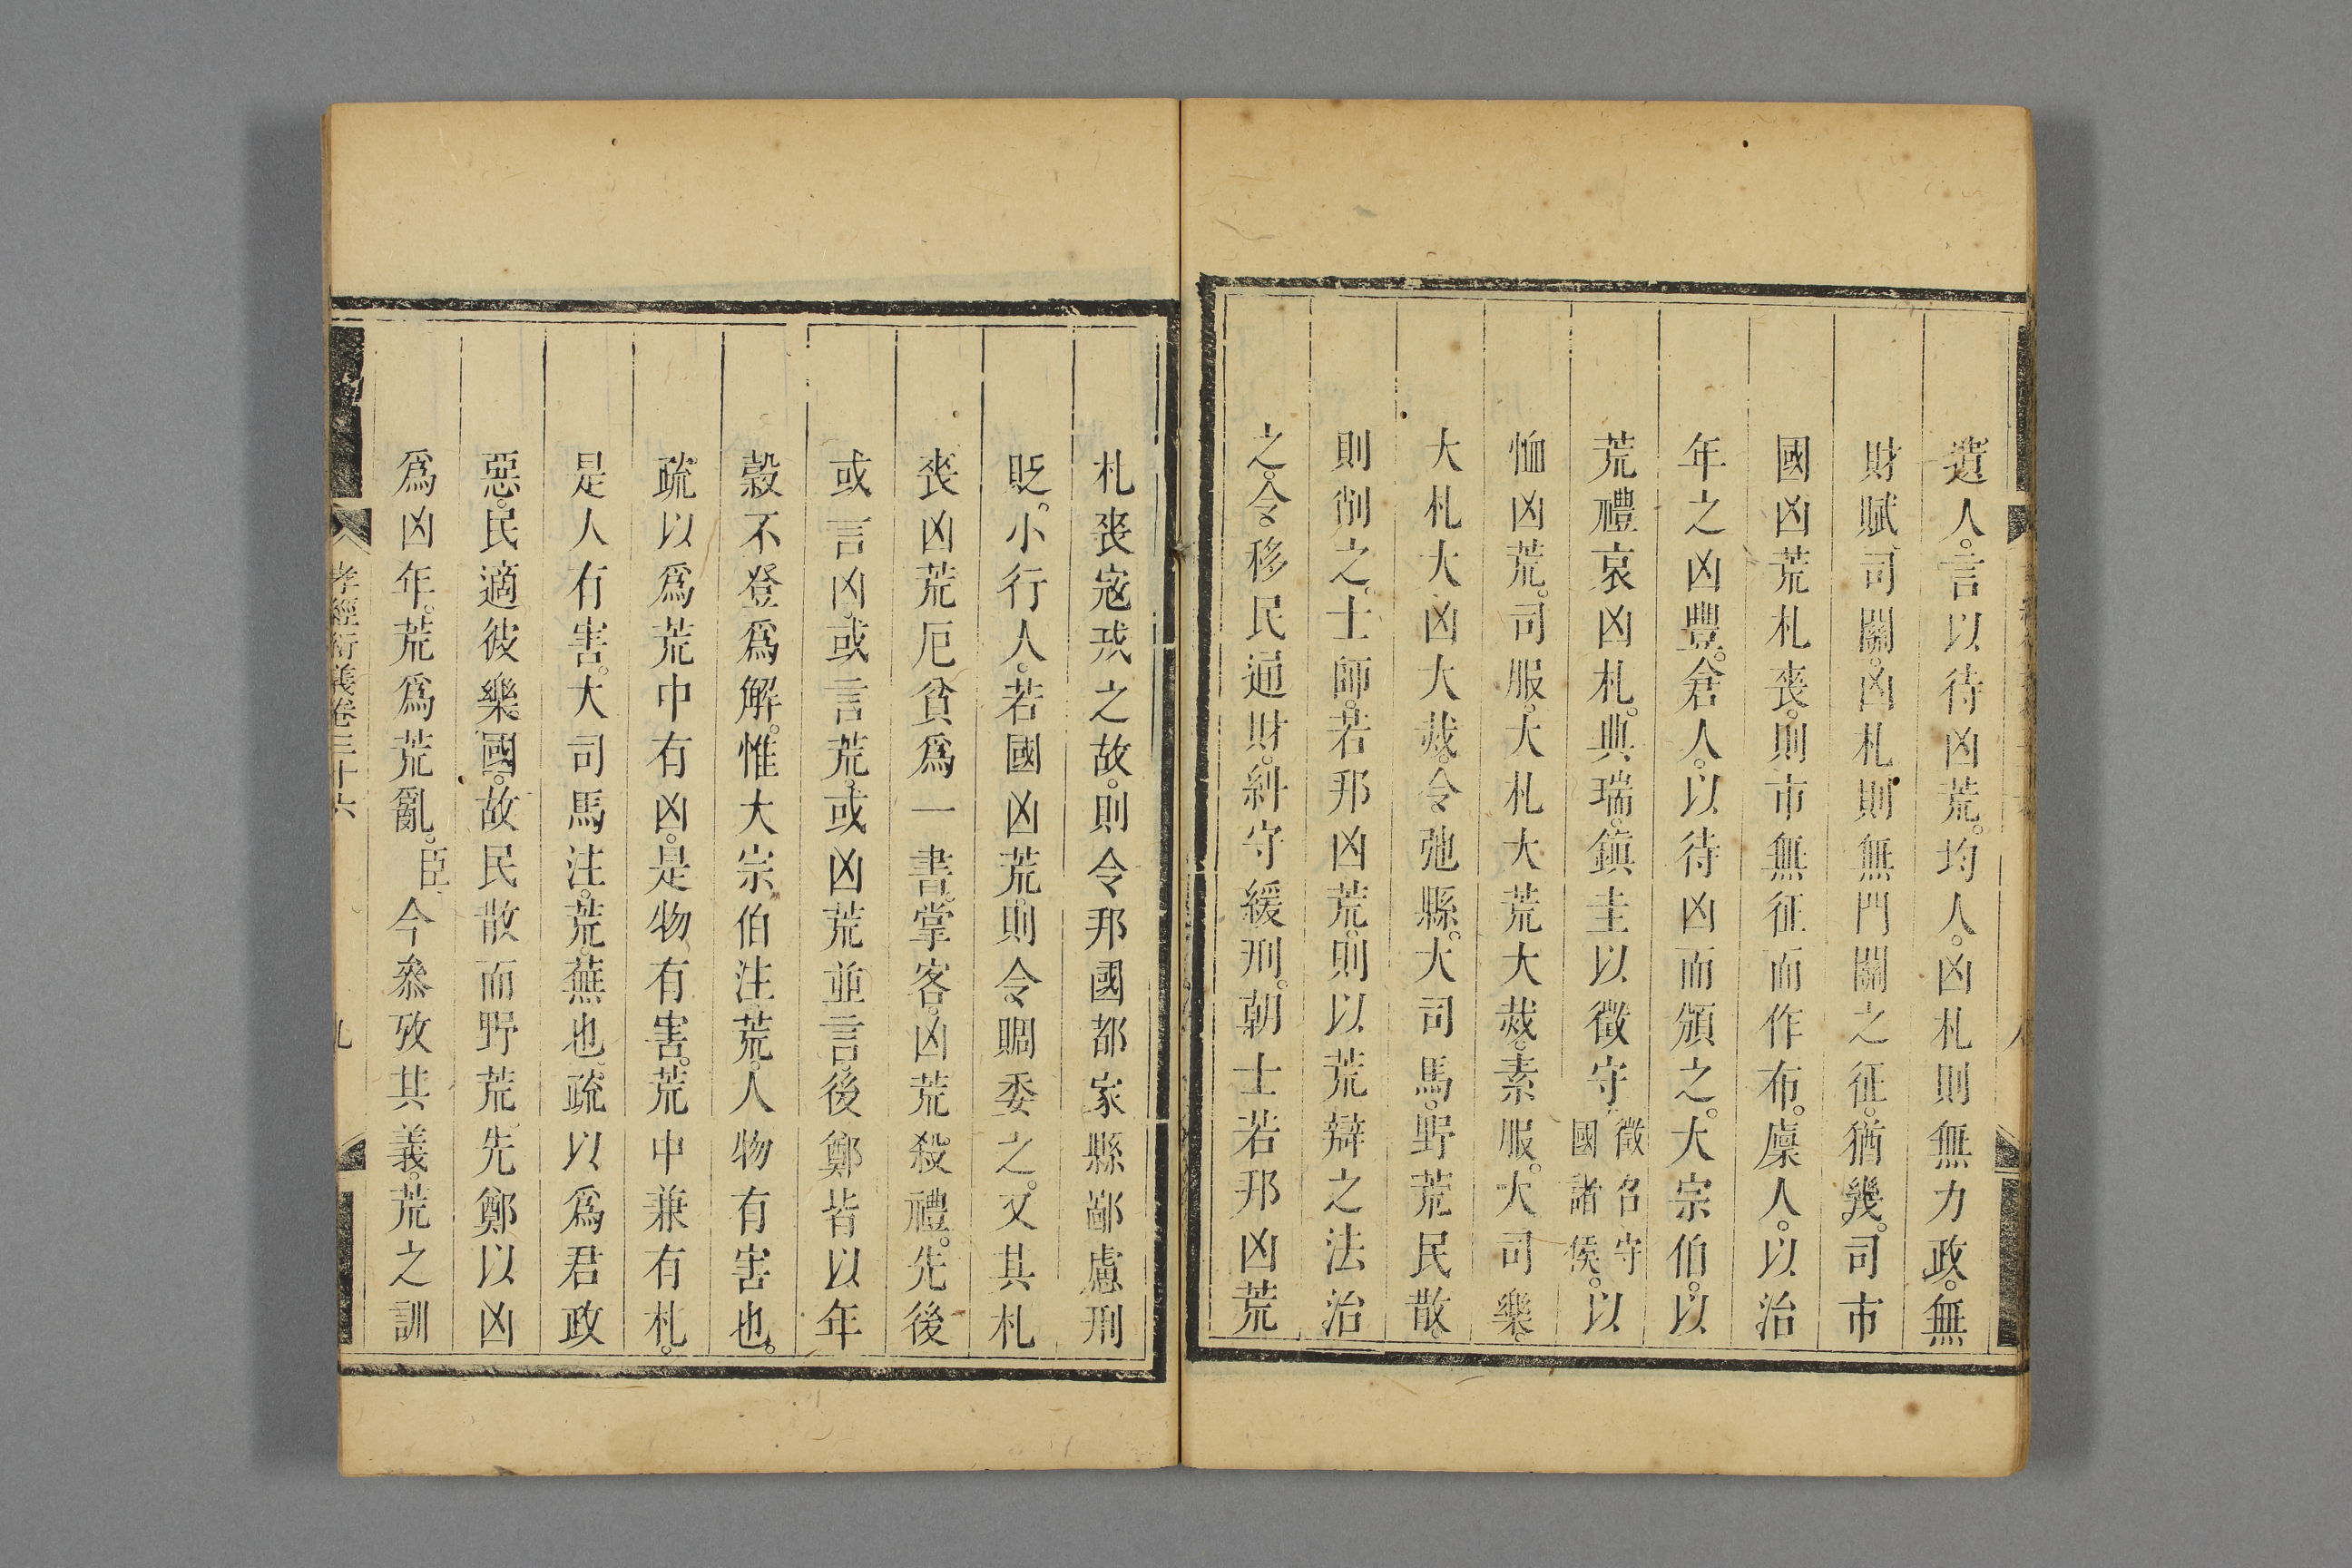 遺人。言以待凶荒。均人。凶札則無力政。無
財賦。司關。凶札則無門關之征。猶幾。司市
國凶荒札喪。則市無征而作布。廩人。以治
年之凶豐。倉人。以待凶而頒之。大宗伯。以
荒禮哀凶札。典瑞。鎮圭以徵守。徵名守國諸侯。以
恤凶荒。司服。大札大荒大烖。素服。大司樂。
大札大凶大烖。令弛縣。大司馬。野荒民散。
則削之。士師。若邦凶荒。則以荒辯之法治
之。令移民通財。糾守緩刑。朝士若邦凶荒
札喪寇戎之故。則令邦國都家縣鄙慮刑
貶。小行人。若國凶荒。則令賙委之。又其札
喪凶荒厄貧爲一書。掌客。凶荒殺禮。先後
或言凶。或言荒。或凶荒並言。後鄭皆以年
穀不登爲解。惟大宗伯注。荒。人物有害也。
疏以爲荒中有凶。是物有害。荒中兼有札。
是人有害。大司馬注。荒。蕪也。疏以爲君政
惡。民適彼樂國。故民散而野荒。先鄭以凶
爲凶年。荒爲荒亂。臣今叅攷其義。荒之訓
孝經衍義卷三十六
九